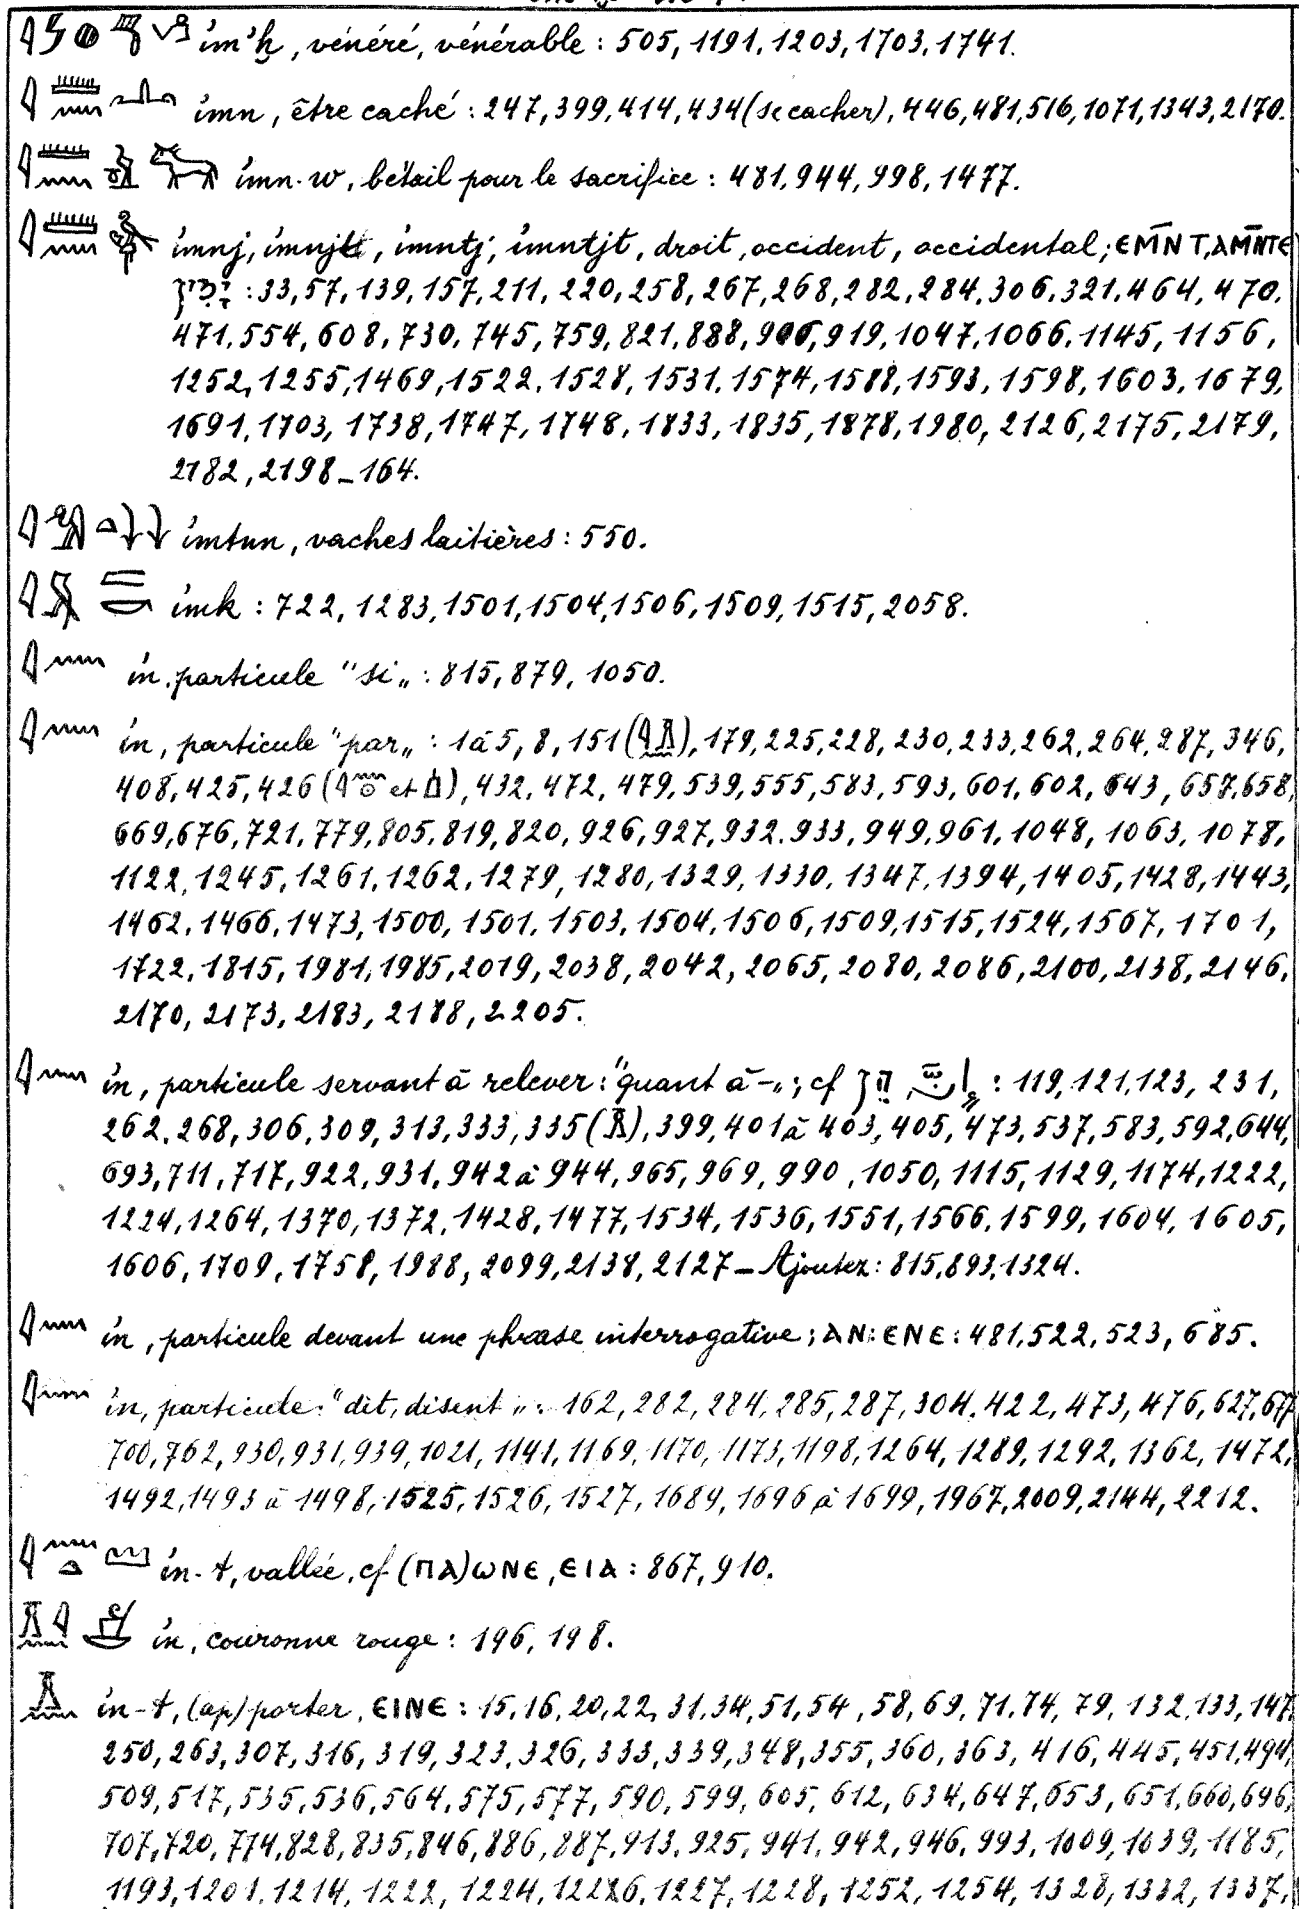 𓇋 im'ḫ, vénéré, vénérable : 505, 1191, 1203, 1703, 1741.
𓇋𓏠𓈖 imn, être caché : 247, 399, 414, 434 (se cacher), 446, 481, 516, 1071, 1343, 2170.
𓇋𓏠𓈖 imn.w, bétail pour le sacrifice : 481, 944, 998, 1477.
𓇋𓏠𓈖 imnj, imnjt, imntj, imntjt, droit, occident, occidental; ⲈⲘ̄ⲚⲦ, ⲀⲘ̄ⲚⲦⲈ
יָמִין : 33, 57, 139, 157, 211, 220, 258, 267, 268, 282, 284, 306, 321, 464, 470,
471, 554, 608, 730, 745, 759, 821, 888, 906, 919, 1047, 1066, 1145, 1156,
1252, 1255, 1469, 1522, 1528, 1531, 1574, 1588, 1593, 1598, 1603, 1679,
1691, 1703, 1738, 1747, 1748, 1833, 1835, 1878, 1980, 2126, 2175, 2179,
2182, 2198_164.
𓇋 imtnn, vaches laitières : 550.
𓇋 imk : 722, 1283, 1501, 1504, 1506, 1509, 1515, 2058.
𓇋𓈖 in, particule "si„ : 815, 879, 1050.
𓇋𓈖 in, particule "par„ : 1 à 5, 8, 151 (𓇋𓏎), 179, 225, 228, 230, 233, 262, 264, 287, 346,
408, 425, 426 (𓇋𓈖𓏌 et), 432, 472, 479, 539, 555, 583, 593, 601, 602, 643, 657, 658,
669, 676, 721, 779, 805, 819, 820, 926, 927, 932, 933, 949, 961, 1048, 1063, 1078,
1122, 1245, 1261, 1262, 1279, 1280, 1329, 1330, 1347, 1394, 1405, 1428, 1443,
1462, 1466, 1473, 1500, 1501, 1503, 1504, 1506, 1509, 1515, 1524, 1567, 1701,
1722, 1815, 1981, 1985, 2019, 2038, 2042, 2065, 2080, 2086, 2100, 2138, 2146,
2170, 2173, 2183, 2188, 2205.
𓇋𓈖 in, particule servant à relever : "quant à -„; cf הן : 119, 121, 123, 231,
262, 268, 306, 309, 313, 333, 335 (𓏎), 399, 401 à 403, 405, 473, 537, 583, 592, 644,
693, 711, 717, 922, 931, 942 à 944, 965, 969, 990, 1050, 1115, 1129, 1174, 1222,
1224, 1264, 1370, 1372, 1428, 1477, 1534, 1536, 1551, 1566, 1599, 1604, 1605,
1606, 1709, 1758, 1988, 2099, 2138, 2127 _ Ajoutez : 815, 893, 1324.
𓇋𓈖 in, particule devant une phrase interrogative; ⲀⲚ: ⲈⲚⲈ : 481, 522, 523, 685.
𓇋𓈖 in, particule: "dit, disent„ : 162, 282, 284, 285, 287, 304, 422, 473, 476, 627, 677
700, 762, 930, 931, 939, 1021, 1141, 1169, 1170, 1173, 1198, 1264, 1289, 1292, 1362, 1472,
1492, 1493 à 1498, 1525, 1526, 1527, 1689, 1696 à 1699, 1967, 2009, 2144, 2212.
𓇋𓈖𓏏𓈉 in-t, vallée, cf (ⲠⲀ)ⲰⲚⲈ, ⲈⲒⲀ : 867, 910.
𓏎𓇋𓋔 in, couronne rouge : 196, 198.
𓏎 in-t, (ap)porter, ⲈⲒⲚⲈ : 15, 16, 20, 22, 31, 34, 51, 54, 58, 69, 71, 74, 79, 132, 133, 147
250, 263, 307, 316, 319, 323, 326, 333, 339, 348, 355, 360, 363, 416, 445, 451, 494,
509, 517, 535, 536, 564, 575, 577, 590, 599, 605, 612, 634, 647, 653, 651, 660, 696,
707, 720, 774, 828, 835, 846, 886, 887, 913, 925, 941, 942, 946, 993, 1009, 1039, 1185,
1193, 1201, 1214, 1222, 1224, 1226, 1227, 1228, 1252, 1254, 1328, 1332, 1337,